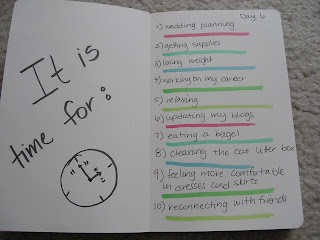 It is
time for:
Day 6
1) wedding planning
2) getting supplies
3) losing weight
4) working on my career
5) relaxing
6) updating my blogs
7) eating a bagel
8) cleaning the cat liter box
9) feeling more comfortable
in dresses and skirts
10) reconnecting with friends